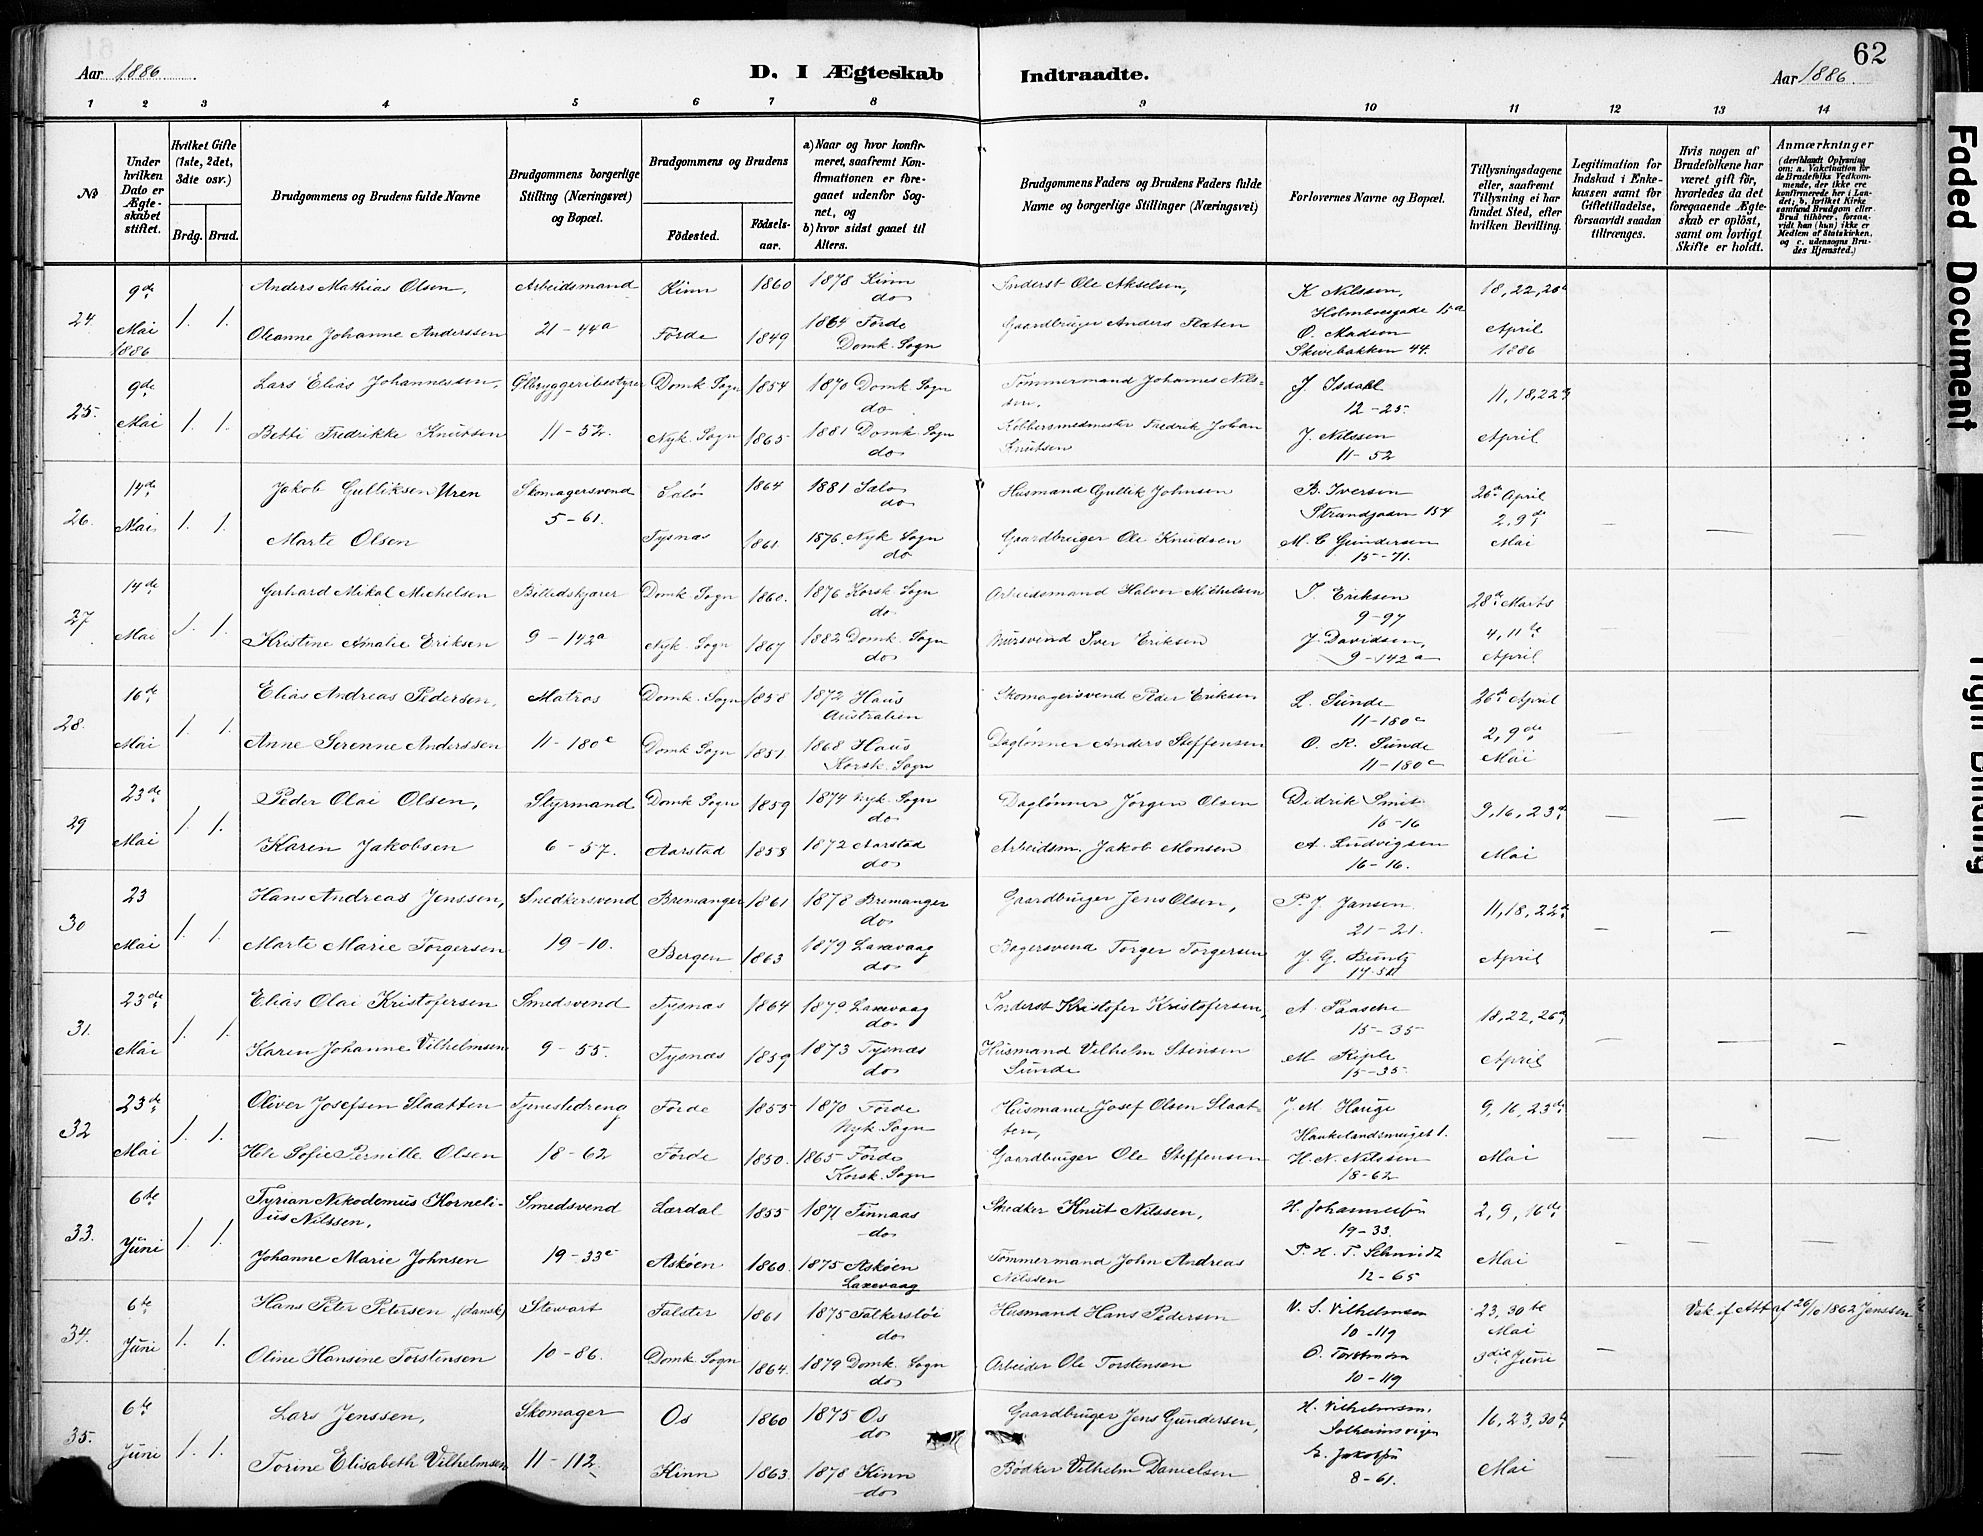 62
Aar 1886
D. I Ægteskab Indtraadte.
Aar 1886
1 2 3 4 5 6 7 8 9 10 11 12 13 14
No
Under hvilken Dato er Ægteskabet stiftet.
Hvilket Gifte (1ste, 2det, 3die osv.)
Brdg. Brud.
Brudgommens og Brudens fulde Navne
Brudgommens borgerlige Stilling (Næringsvei) og Bopæl.
Brudgommens og Brudens
Fødested.
Fødselsaar.
a) Naar og hvor konfirmeret, saafremt Konfirmationen er foregaaet udenfor Sognet, og
b) hvor sidst gaaet til Alters.
Brudgommens Faders og Brudens Faders fulde Navne og borgerlige Stillinger (Næringsvei)
Forlovernes Navne og Bopæl.
Tillysningsdagene eller, saafremt Tillysning ei har fundet Sted, efter hvilken Bevilling.
Legitimation for Indskud i Enkekassen samt for Giftetilladelse, forsaavidt saadan tiltrænges.
Hvis nogen af Brudefolkene har været gift før, hvorledes da det foregaaende Ægteskab er opløst, samt om lovligt Skifte er holdt.
Anmærkninger
(deriblandt Oplysning om: a. Vakcination for de Brudefolks Vedkommende, der ikke ere konfirmerede her i Landet; b. hvilket Kirkesamfund Brudgom eller Brud tilhører, forsaavidt han (hun) ikke er Medlem af Statskirken, og c. udensogns Brudes Hjemsted.)
24. 9de Mai 1886 1. 1.
Anders Mathias Olsen, Arbeidsmand Kinn 1860 1878 Kinn do Inderst Ole Akselsen, K Nilssen, Holmboesgade 15a 18, 22, 26de
Oleanne Johanne Anderssen 21-44a Förde 1849 1864 Förde Domk. Sogn Gaardbruger Anders Flaten O. Madsen Skivebakken 44. April 1886
25. 9de Mai 1. 1.
Lars Elias Johannessen, Ølbryggeribestyrer Domk Sogn 1854 1870 Domk Sogn do Tømmermand Johannes Nilssen, J. Isdahl 12-25. 11, 18, 22de
Betti Fredrikke Knutsen 11-52. Nyk. Sogn 1865 1881 Domk. Sogn do Kobbersmedmester Fredrik Johan Knutsen J. Nilssen 11-52 April
26. 14de Mai 1. 1.
Jakob Gulliksen Uren Skomagersvend 1864 1881 do Husmand Gullik Johnsen B. Iversen Strandgaden 154 26de April
Marte Olsen 5-61. Tysnæs 1861. 1876. Nyk Sogn do Gaardbruger Ole Knudsen M. C Gundersen 15-71. 2, 9de Mai
27. 14de Mai 1. 1.
Gerhard Mikal Michelsen Billedskjærer Domk Sogn 1860. 1876 Korsk Sogn do Arbeidsmand Halvor Michelsen I. Eriksen 9-97 28de Marts
Kristine Amalie Eriksen 9-142a Nyk. Sogn 1867 1882 Domk. Sogn do Mursvend Iver Eriksen J. Davidsen, 9-142a 4, 11te April
28. 16de Mai 1. 1.
Elias Andreas Pedersen, Matros Domk. Sogn 1858 1872 Haus Australien Skomagersvend Peder Eriksen L. Sunde 11-180c 26de April
Anne Serenne Anderssen 11-180c Domk Sogn 1851. 1868 Haus Korsk. Sogn Daglønner Anders Steffensen O. R. Sunde 11-180c 2, 9de Mai
29 23de Mai 1. 1.
Peder Olai Olsen, Styrmand Domk Sogn 1859 1874 Nyk. Sogn do Daglønner Jørgen Olsen Didrik Smit 16-16 9, 16, 23de
Karen Jakobsen 6-57. Aarstad 1858 1872 Aarstad do Arbeidsm. Jakob Monsen A. Ludvigsen 16-16. Mai
30 23 Mai 1. 1.
Hans Andreas Jenssen, Snedkersvend Bremanger 1861 1878 Bremanger do Gaardbruger Jens Olsen, P. J. Jansen 21-21. 11, 18, 22de
Marte Marie Torgersen 19-10. Bergen 1863 1879 Laxevaag do Bagersvend Torger Torgersen J. G. Buntz April
31. 23de Mai 1. 1.
Elias Olai Kristofersen Smedsvend Tysnæs 1864 1879 Laxevaag do Inderst Kristofer Kristofersen, A. Paasche 15-35 18, 22, 26de
Karen Johanne Vilhelmsen 9-55. Tysnæs 1859 1873 Tysnæs do Husmand Vilhelm Stensen Sunde M. Riple 15-35 April
32 23de Mai 1. 1.
Oliver Josefsen Slaatten Tjenestedreng Förde 1855 1870 Förde Nyk. Sogn Husmand Josef Olsen Slaatten, J. M. Hauge Haukelandsveiget 1. 9, 16, 23de
Sofie Pernille Olsen 18-62 Förde 1850. 1865 Förde Korsk. Sogn Gaardbruger Ole Steffensen H. N. Nilssen 18-62 Mai
33. 6te Juni 1. 1.
Tyrian Nikodemus Kornelius Nilssen, Smedsvend Lærdal 1855 1871 Finnaas do Snedker Knut Nilssen, H. Johannessen 19-33. 2, 9, 16de
Johanne Marie Johnsen 19-33c Askøen 1860. 1875 Askøen Laxevaag Tømmermand John Andreas Nilssen P. H. T. Schmidt 12-65 Mai
34. 6te Juni 1. 1.
Hans Peter Petersen (dansk) Stewart Falster 1861 1875 do Husmand Hans Pedersen V. S. Vilhelmsen 10-119 23, 30te Mai Vak. f Att af 26/10 1862 Jenssen
Oline Hansine Torstensen 10-86. Domk. Sogn 1864. 1879 Domk. Sogn do Arbeider Ole Torstensen O. Torstensen 10-119 3die Juni
35. 6te Juni 1. 1.
Lars Jenssen, Skomager Os 1860 1875 Os do Gaardbruger Jens Gundersen, H. Vilhelmsen, Solheimsvigen 16, 23, 30te
Torine Elisabeth Vilhelmsen 11-112 Kinn 1863. 1878 Kinn do Bødker Vilhelm Danielsen 8-61. Mai
Faded Document
Tight Binding